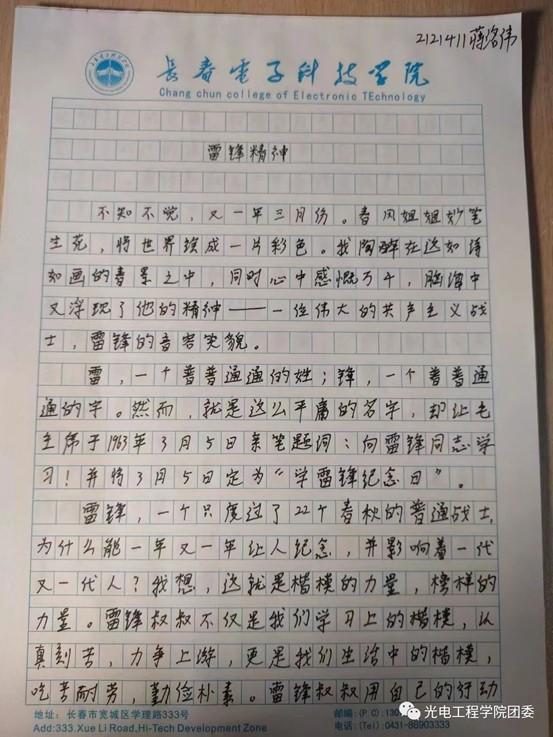 2121411蒋洛伟
长春电子科技学院
Chang chun college of Electronic TEchnology
雷锋精神
不知不觉，又一年三月份。春风姐姐妙笔
生花，将世界染成一片彩色。我陶醉在这如诗
如画的春景之中，同时心中感慨万千，脑海中
又浮现了他的精神——一位伟大的共产主义战
士，雷锋的音容笑貌。
雷，一个普普通通的姓；锋，一个普普通
通的字。然而，就是这么平庸的名字，却让毛
主席于1963年3月5日亲笔题词：向雷锋同志学
习！并将3月5日定为“学雷锋纪念日”。
雷锋，一个只度过了22个春秋的普通战士，
为什么能一年又一年让人纪念，并影响着一代
又一代人？我想，这就是楷模的力量，榜样的
力量。雷锋叔叔不仅是我们学习上的楷模，认
真刻苦，力争上游，更是我们生活中的楷模，
吃苦耐劳，勤俭朴素。雷锋叔叔用自己的行动
地址：长春市宽城区学理路333号
邮编：(P.C):130
Add:333.Xue Li Road,Hi-Tech Development Zone
电话：(Tel):0431-86903333
光电工程学院团委